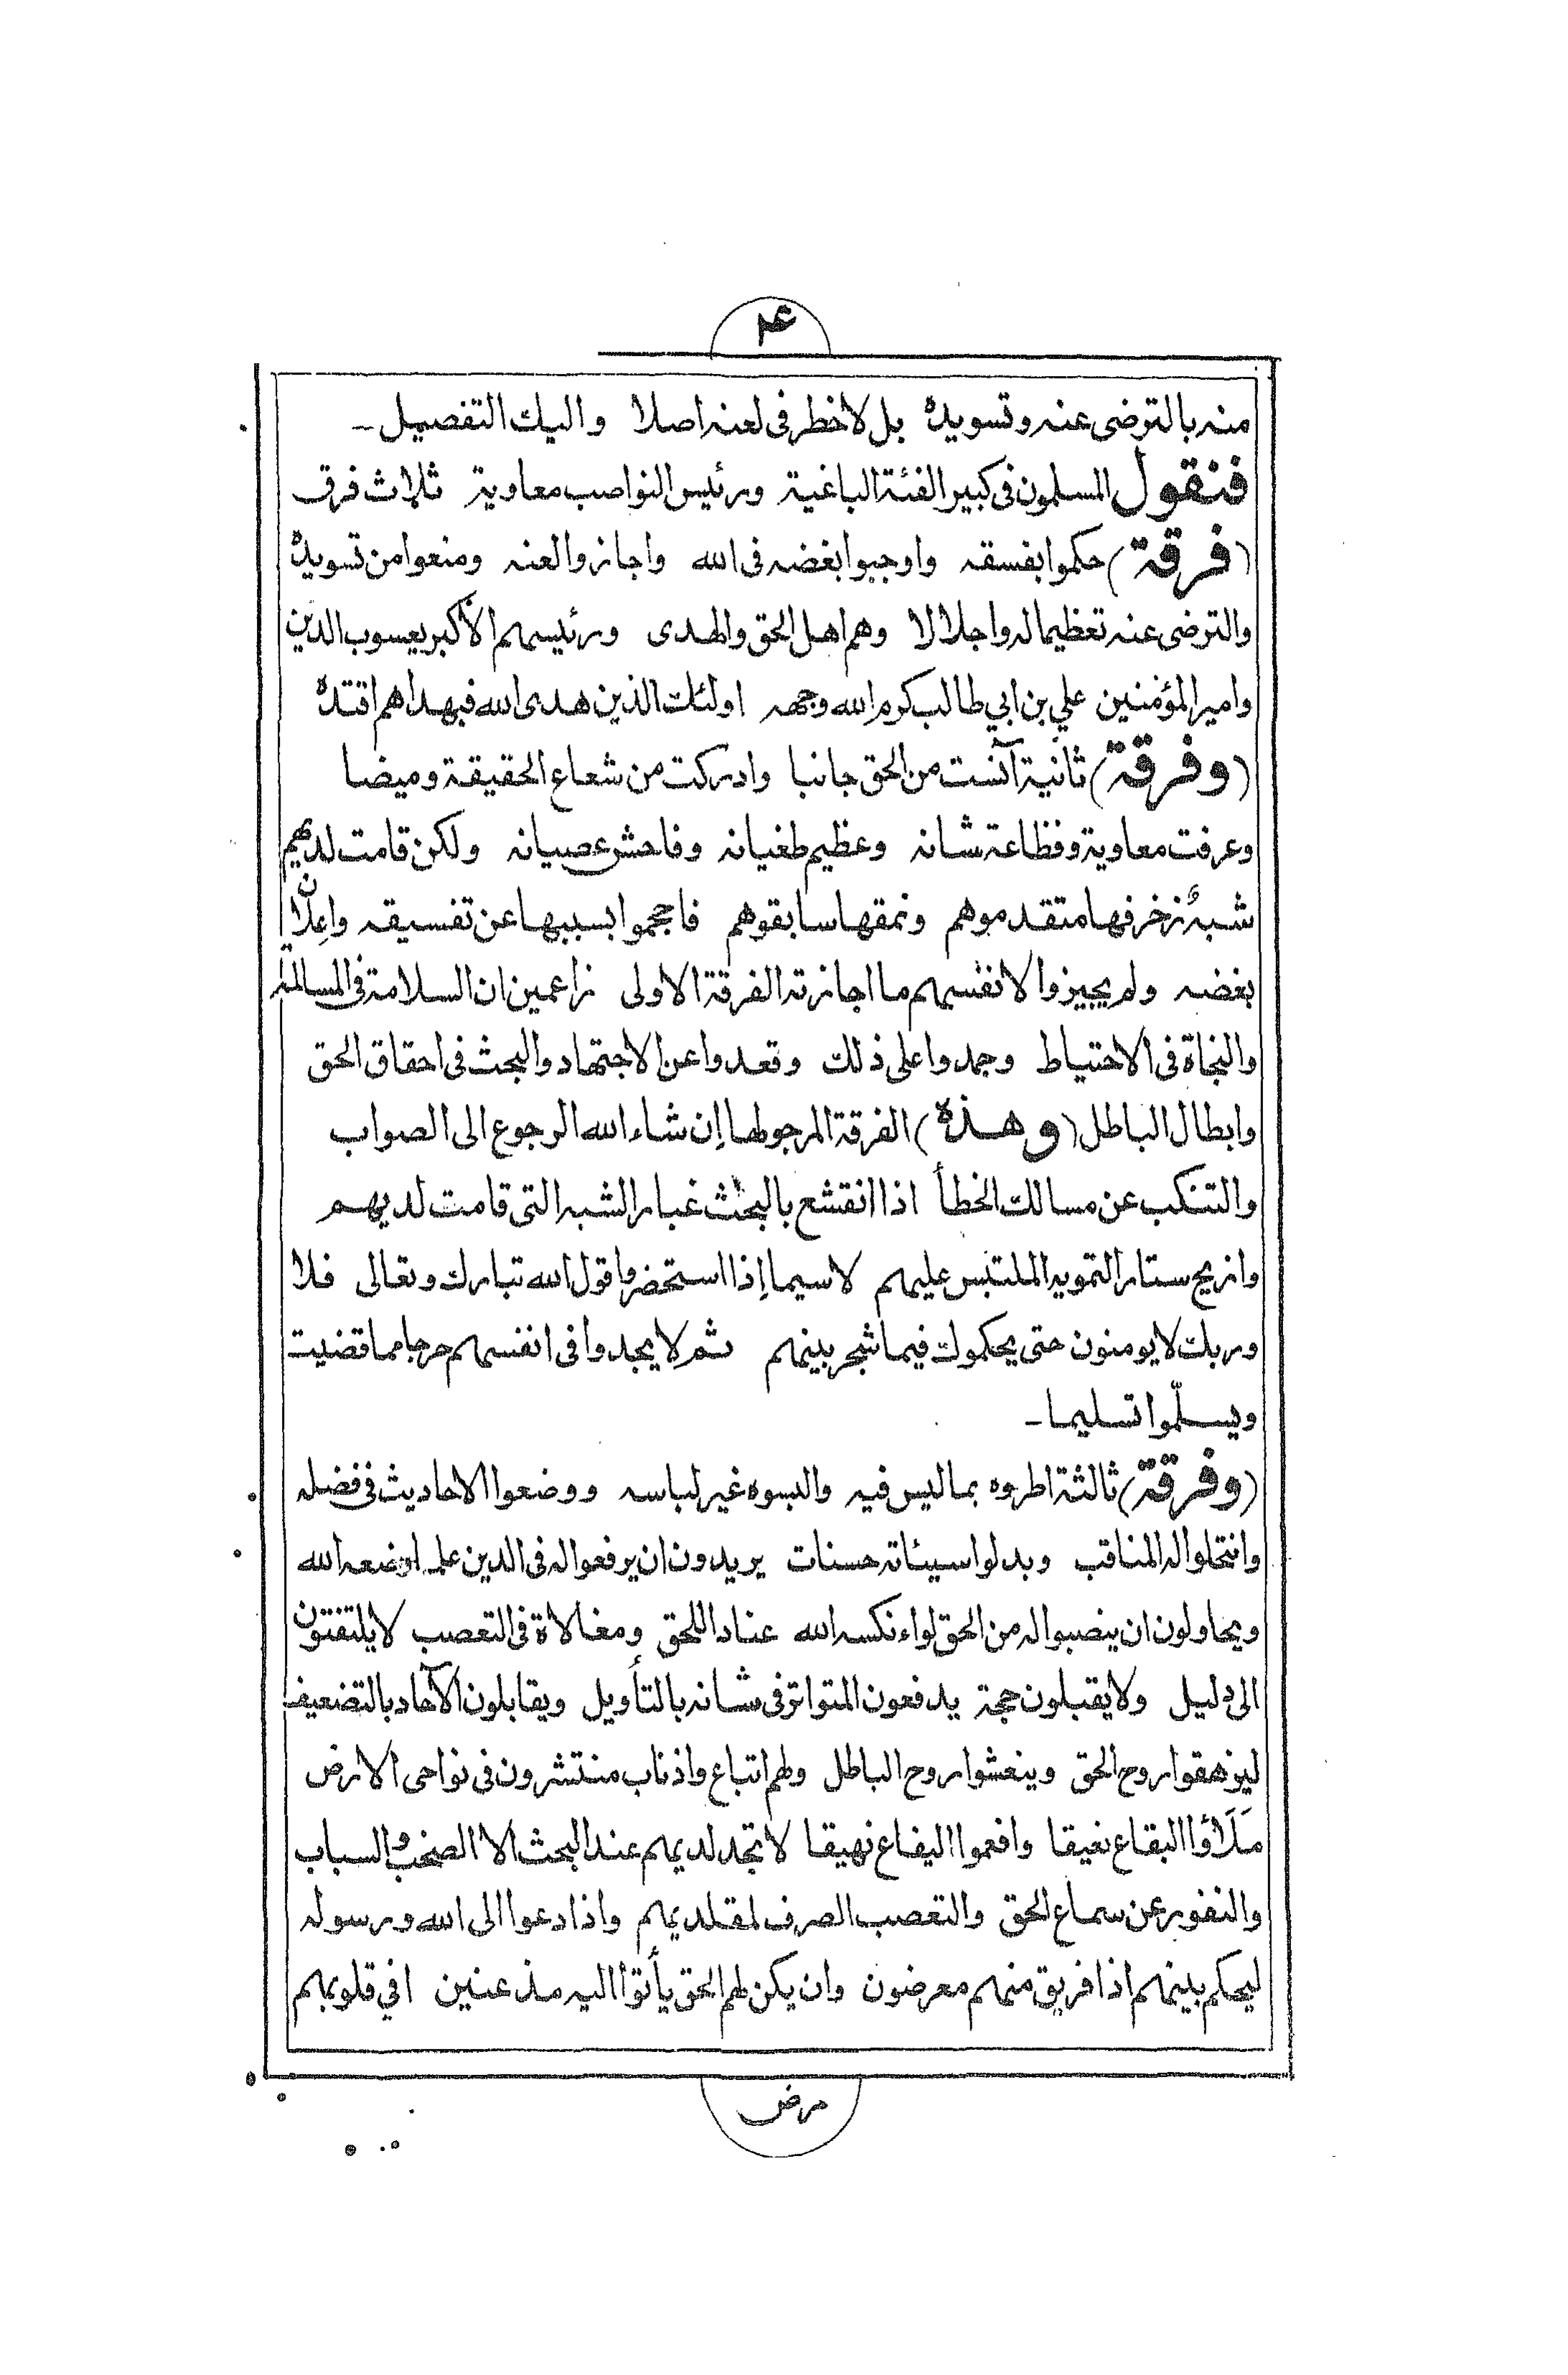 ۴
منه بالترضى عنه وتسويده بل لا خطر فى لعنه اصلا واليك التفصيل -
فنقول المسلمون فى كبير الفئة الباغية ورئيس النواصب معاوية ثلاث فرق
(فرقة) حكموا بفسقه واوجبوا بغضه فى الله واجازوا لعنه ومنعوا من تسويده
والترضى عنه تعظيما له واجلالا وهم اهل الحق والهدى ورئيسهم الأكبر يعسوب الدين
وامير المؤمنين علي بن ابي طالب كرم الله وجهه اولئك الذين هدى الله فبهداهم اقتده
(وفرقة) ثانية آنست من الحق جانبا وادركت من شعاع الحقيقة وميضا
وعرفت معاوية وفظاعة شانه وعظيم طغيانه وفاحش عصيانه ولكن قامت لديهم
شبهٌ زخرفها متقدموهم ونمقها سابقوهم فاحجموا بسببها عن تفسيقه واعلان
بغضه ولم يجيزوا لانفسهم ما اجازته الفرقة الاولى زاعمين ان السلامة فى المسالمة
والنجاة فى الاحتياط وجمدوا على ذلك وقعدوا عن الاجتهاد والبحث فى احقاق الحق
وابطال الباطل (وهذه) الفرقة المرجو لها إن شاء الله الرجوع الى الصواب
والتنكب عن مسالك الخطأ اذا انقشع بالبحث غبار الشبه التى قامت لديهم
وازيح ستار التمويه الملتبس عليهم لا سيما إذا استحضروا قول الله تبارك وتعالى فلا
وربك لا يومنون حتى يحكموك فيما شجر بينهم ثم لا يجدوا فى انفسهم حرجا مما قضيت
ويسلّموا تسليما -
(وفرقة) ثالثة اطروه بما ليس فيه والبسوه غير لباسه ووضعوا الاحاديث فى فضله
وانتحلوا له المناقب وبدلوا سيئاته حسنات يريدون ان يرفعوا له فى الدين علما وضعه الله
ويحاولون ان ينصبوا له من الحق لواء نكسه الله عنادا للحق ومغالاة فى التعصب لا يلتفتون
الى دليل ولا يقبلون حجة يدفعون المتواتر فى شانه بالتأويل ويقابلون الآحاد بالتضعيف
ليزهقوا روح الحق وينعشوا روح الباطل ولهم اتباع واذناب منتشرون فى نواحى الارض
مَلَاؤا البقاع نعيقا وافعموا اليفاع نهيقا لا تجد لديهم عند البحث الا الصخب والسباب
والنفور عن سماع الحق والتعصب الصرف لمقلديهم واذا دعوا الى الله ورسوله
ليحكم بينهم اذا فريق منهم معرضون وان يكن لهم الحق يأتوا اليه مذعنين افي قلوبهم
مرض